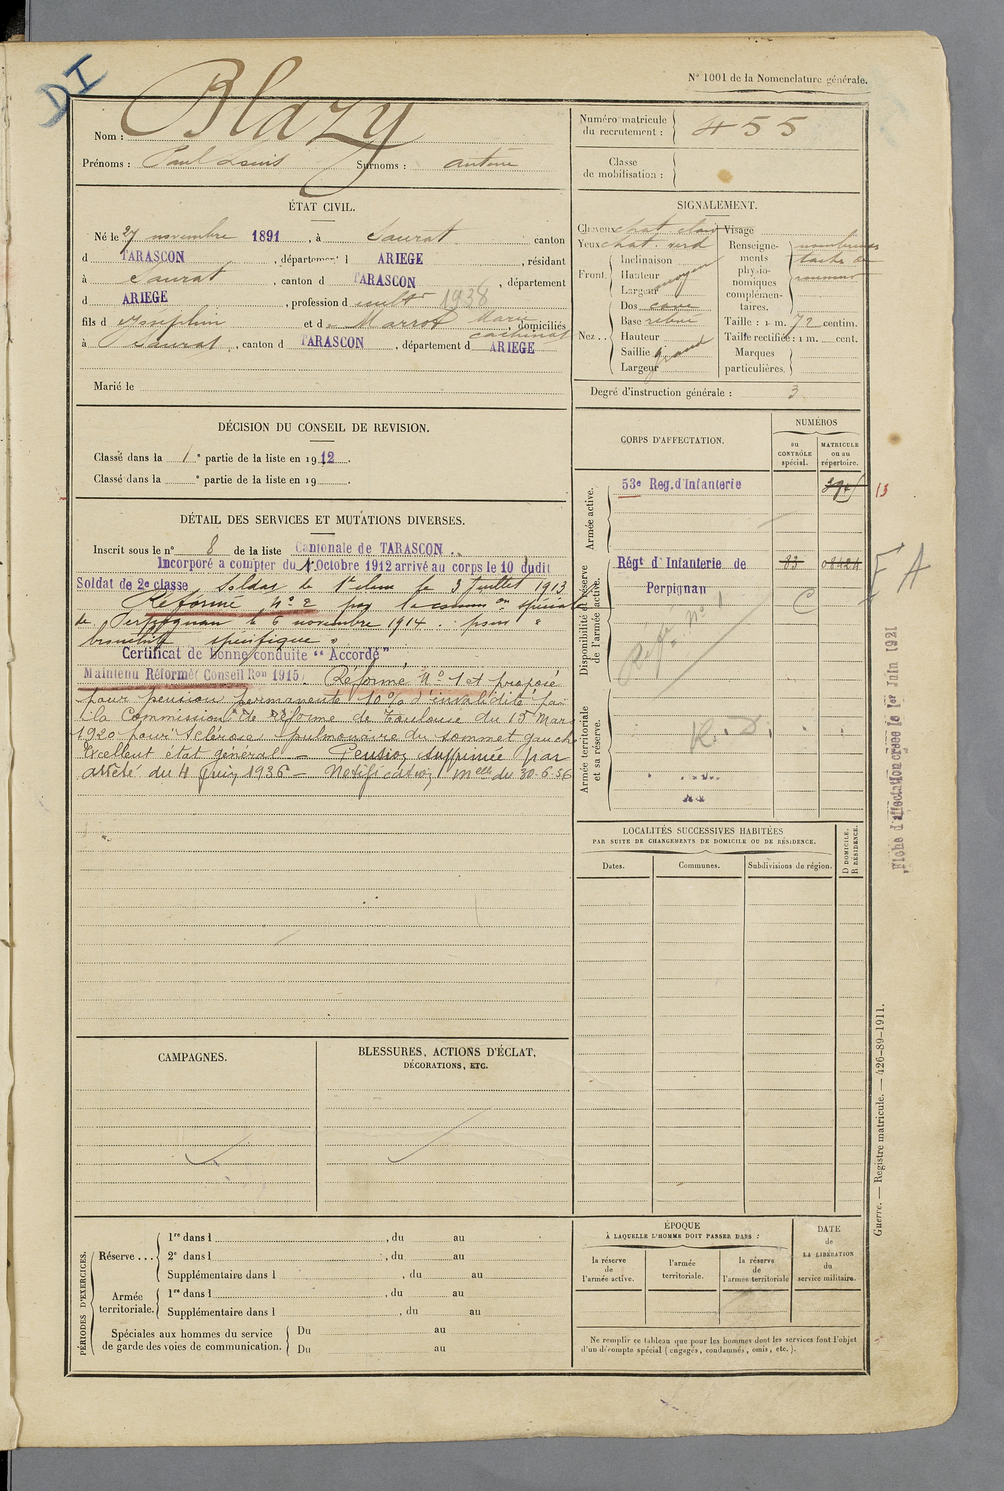 DI
N° 1001 de la Nomenclature générale.
Nom : Blazy
Prénoms : Paul Louis Surnoms : antoine
Numéro matricule du recrutement : 455
Classe de mobilisation :
ÉTAT CIVIL.
Né le 27 novembre 1891, à Saurat canton
d TARASCON, département d ARIEGE, résidant
à Saurat, canton d TARASCON, département
d ARIEGE, profession d cultr 1938
fils d Josephin et d Marrot Marie domiciliés
à Saurat, canton d TARASCON, département d ARIEGE
Marié le
SIGNALEMENT.
Cheveux chat clair Visage
Yeux chat. verd
Front. Inclinaison
Hauteur
Largeur moyen
Nez.. Dos cave
Base relevé
Hauteur
Saillie grand
Largeur
Renseignements physionomiques complémentaires. nombreuses
taches de
rousseur
Taille : 1 m. 72 centim.
Taille rectifiée : 1 m. cent.
Marques particulières.
Degré d'instruction générale : 3
DÉCISION DU CONSEIL DE REVISION.
Classé dans la 1e partie de la liste en 1912.
Classé dans la e partie de la liste en 19 .
DÉTAIL DES SERVICES ET MUTATIONS DIVERSES.
Inscrit sous le n° 8 de la liste Cantonale de TARASCON
Incorporé à compter du 1 Octobre 1912 arrivé au corps le 10 dudit
Soldat de 2e classe Soldat de 1e classe le 3 Juillet 1913
Réformé N° 2 par la comm on spéciale
de Perpignan le 6 novembre 1914. pour "
bronchite spécifique "
Certificat de bonne conduite "Accordé"
Maintenu Réformé (Conseil Ron 1915). Réformé N° 1 et proposé
pour pension permanente 10% d'invalidité par
la Commission de réforme de Toulouse du 15 Mars
1920 pour Sclérose pulmonaire du sommet gauche
Excellent état général — Pension supprimée par
arrêté du 4 Juin 1936 — Notification melle du 30.6.36
CORPS D'AFFECTATION.
NUMÉROS
au CONTRÔLE spécial.
MATRICULE ou au répertoire.
Armée active.
53e Reg. d'Infanterie
13
Disponibilité et réserve de l'armée active.
Régt d'Infanterie de Perpignan
83
C
F A
Réf. N° 1
Armée territoriale et sa réserve.
R. D.
Fiche d'affectation créée le 1er Juin 1921
LOCALITÉS SUCCESSIVES HABITÉES
PAR SUITE DE CHANGEMENTS DE DOMICILE OU DE RÉSIDENCE.
Dates.
Communes.
Subdivisions de région.
D DOMICILE, R RÉSIDENCE.
CAMPAGNES.
BLESSURES, ACTIONS D'ÉCLAT,
DÉCORATIONS, ETC.
Guerre. — Registre matricule. — 426-89-1911.
PÉRIODES D'EXERCICES.
Réserve... 1re dans l , du au
2e dans l , du au
Supplémentaire dans l , du au
Armée territoriale. 1re dans l , du au
Supplémentaire dans l , du au
Spéciales aux hommes du service
de garde des voies de communication. Du au
Du au
ÉPOQUE
À LAQUELLE L'HOMME DOIT PASSER DANS :
la réserve de l'armée active.
l'armée territoriale.
la réserve de l'armée territoriale
DATE de LA LIBÉRATION du service militaire.
Ne remplir ce tableau que pour les hommes dont les services font l'objet
d'un décompte spécial (engagés, condamnés, omis, etc.).